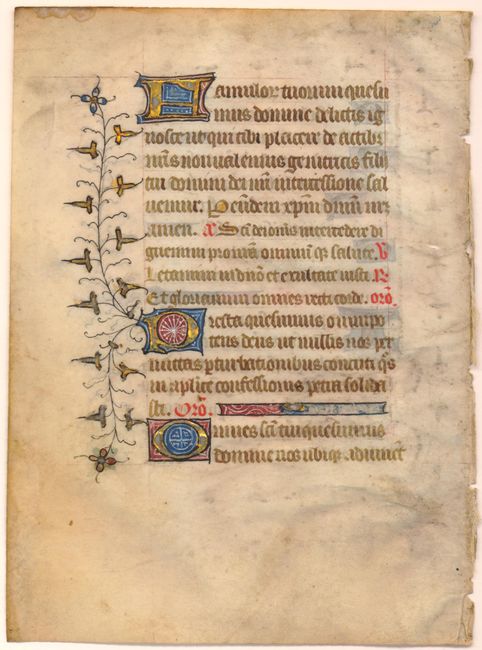 Famulor tuorum quesu
mus domine delictis ig
nosce ut qui tibi placere de actibz
nris non valemus genitricis filij
tui domini dei nri intercessione sal
uemur. Per eundem xpm dnm nrm
amen. a Sci dei omnes intercedere di
gnemini pro nra omnium qz salute. v
Letamini in dno et exultate iusti. R
Et gloriamini omnes recti corde. oro
Presta quesumus omnipo
tens deus ut nullis nos per
mittas pturbationibus concuti qs
in aplice confessionis petra solida
sti. Oro.
Omnes sci tui quesumus
domine nos ubiqz adiuuet